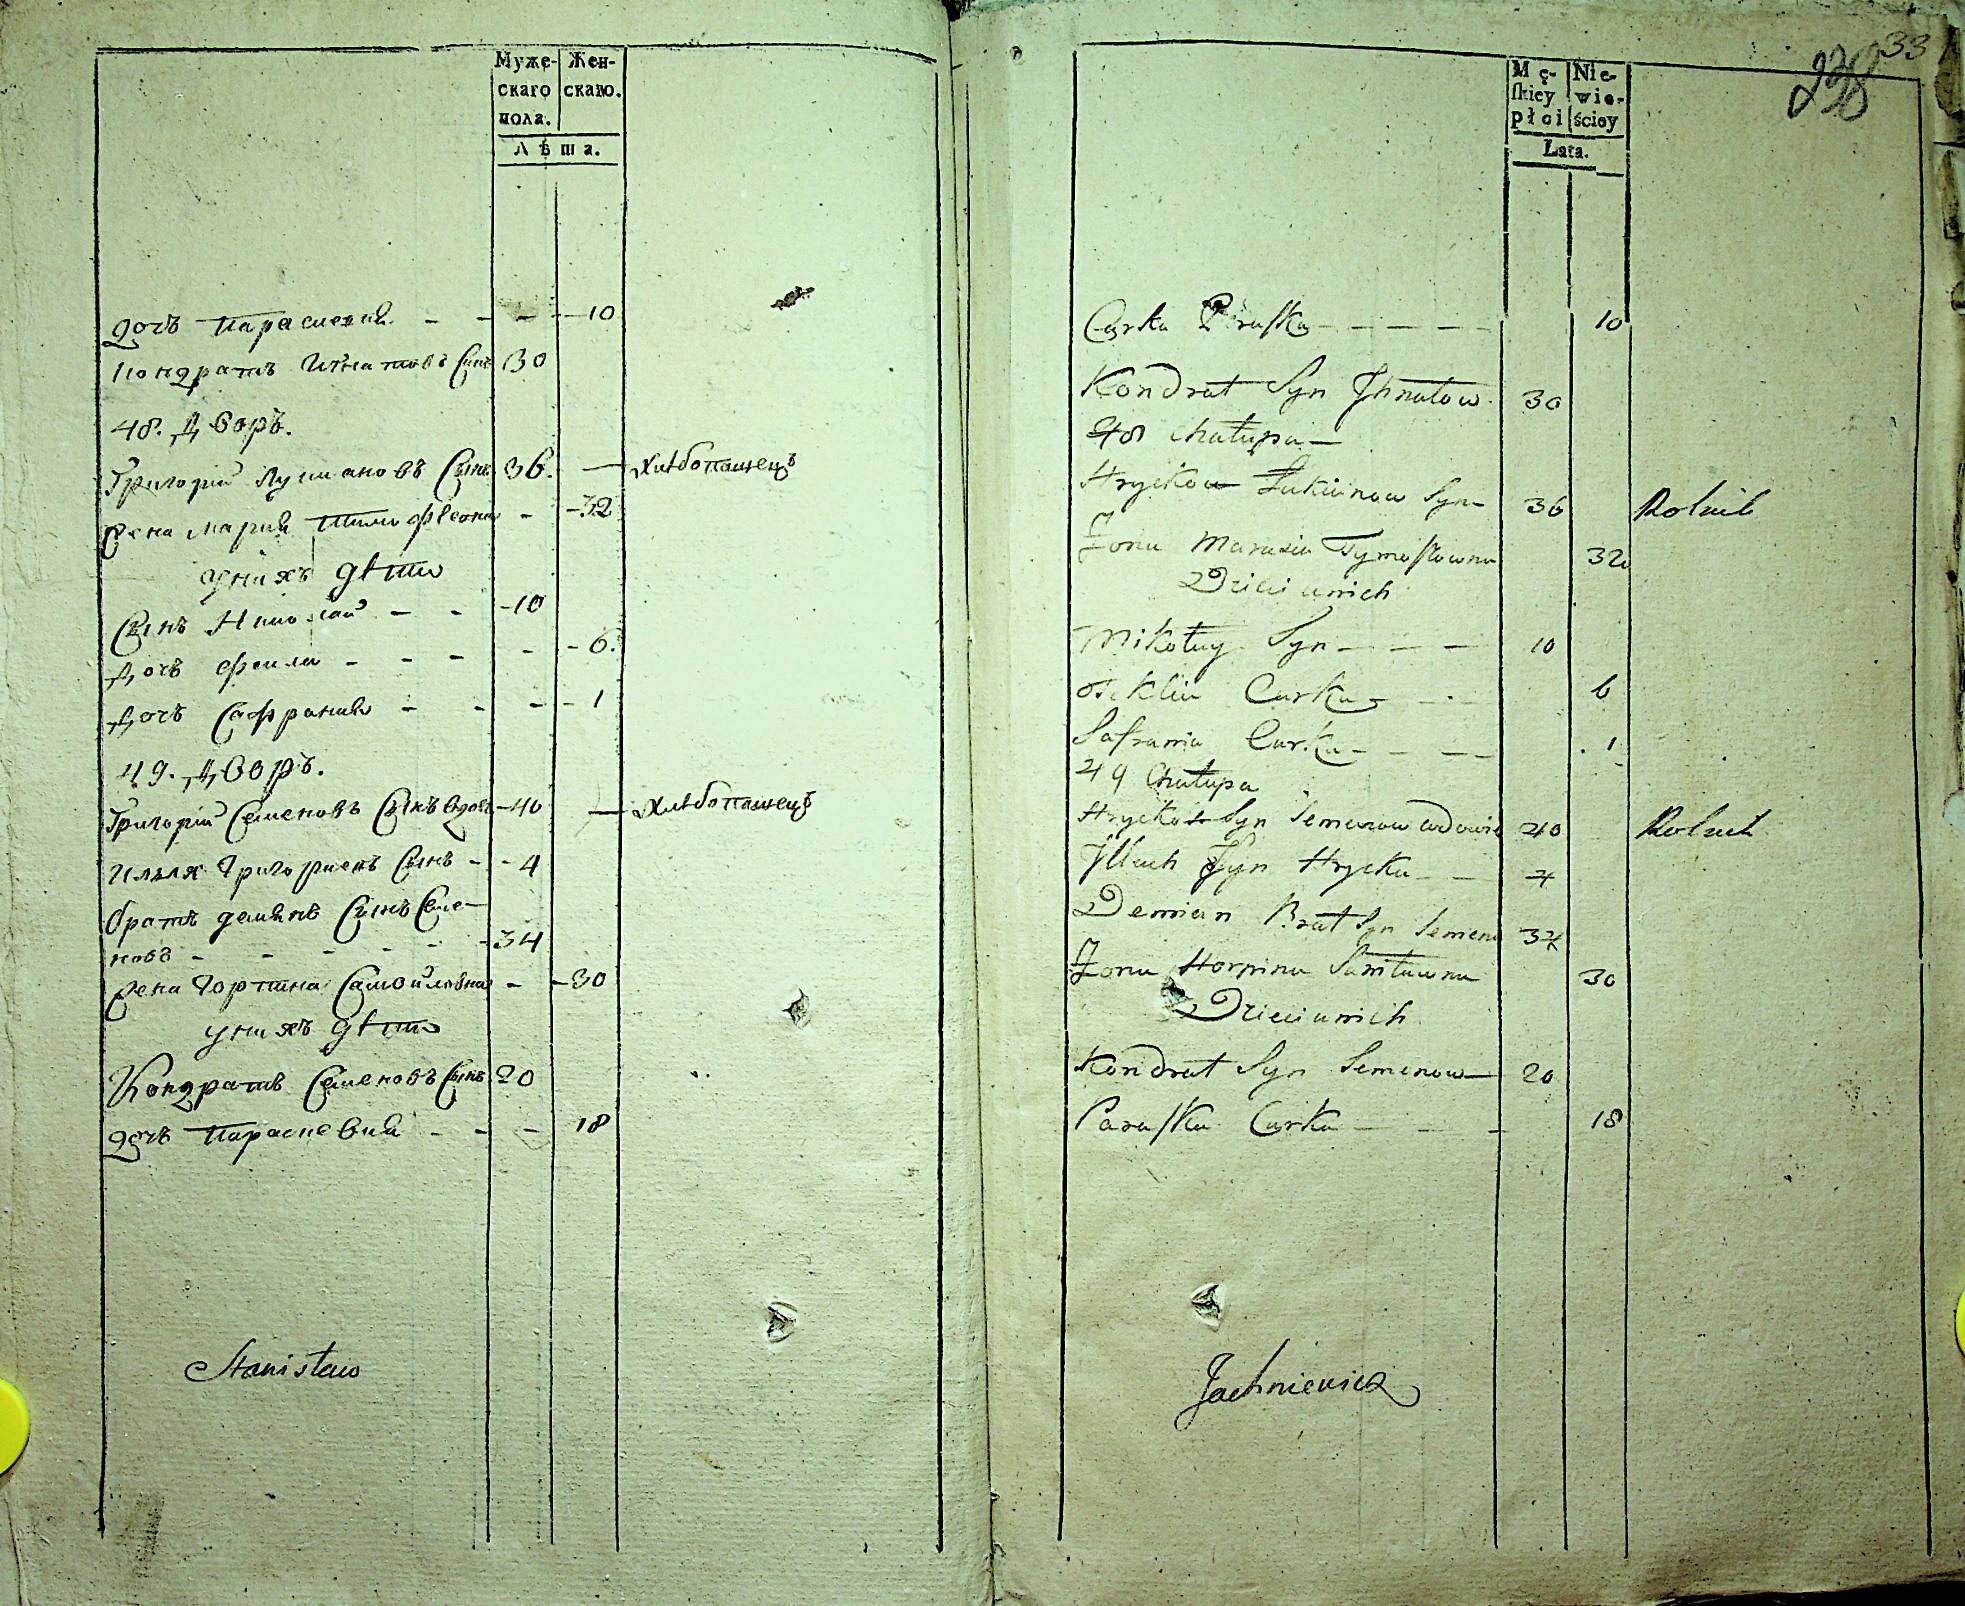 Муже-
скаго
пола.
Жен-
скаго.
Лѣта.
дочь Параскевия - - - - 10
Кондратъ Игнатовъ Сынъ 30
48. Дворъ.
Григорий Лукиановъ Сынъ 36. — Хлѣбопашецъ
Жена Мария Тимофѣевна - - 32
у нихъ дѣти
Сынъ Николай - - - 10
Дочь Фекла - - - - - 6.
Дочь Сафрания - - - - 1
49. Дворъ.
Григорий Семеновъ Сынъ вдовъ - 40 — Хлѣбопашецъ
Илья Григориевъ Сынъ - - 4
братъ демянъ Сынъ Семе-
новъ - - - - - - 34
жена Горпина Самойловна - - 30
у нихъ дѣти
Кондратъ Семеновъ Сынъ 20
дочь Параскевия - - - 18
Stanisław
33
238
Mę-
ſkiey
płci
Nie-
wie-
ściey
Lata.
Curka Paraſka - - - - - 10
Kondrat Syn Jhnatow 30
48 Chałupa —
Hrycko Łukianow Syn - 36 Rolnik
Żona Marusia Tymoſzowna 32
Dzieci u nich
Mikołay Syn - - - 10
Teklia Curka - - - 6
Safrania Curka - - - 1
49 Chałupa
Hrycko Syn Semenow wdowiec 40 Rolnik
Jlliach Syn Hrycka - - 4
Demian Brat Syn Semena 34
Żona Horpina Samiławna 30
Dzieci u nich
Kondrat Syn Semenow — 20
Paraſka Curka - - - 18
Jachniewicz